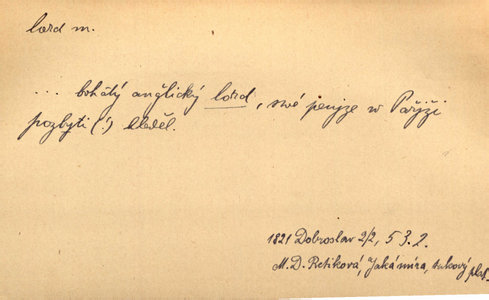 lord m.
... bohatý anglický lord, své peníze w Pařjži
pozbyti (!) chtěl.
1821 Dobroslav 2/2, 53.2.
M. D. Retiková, Jaká míra, takový plat.